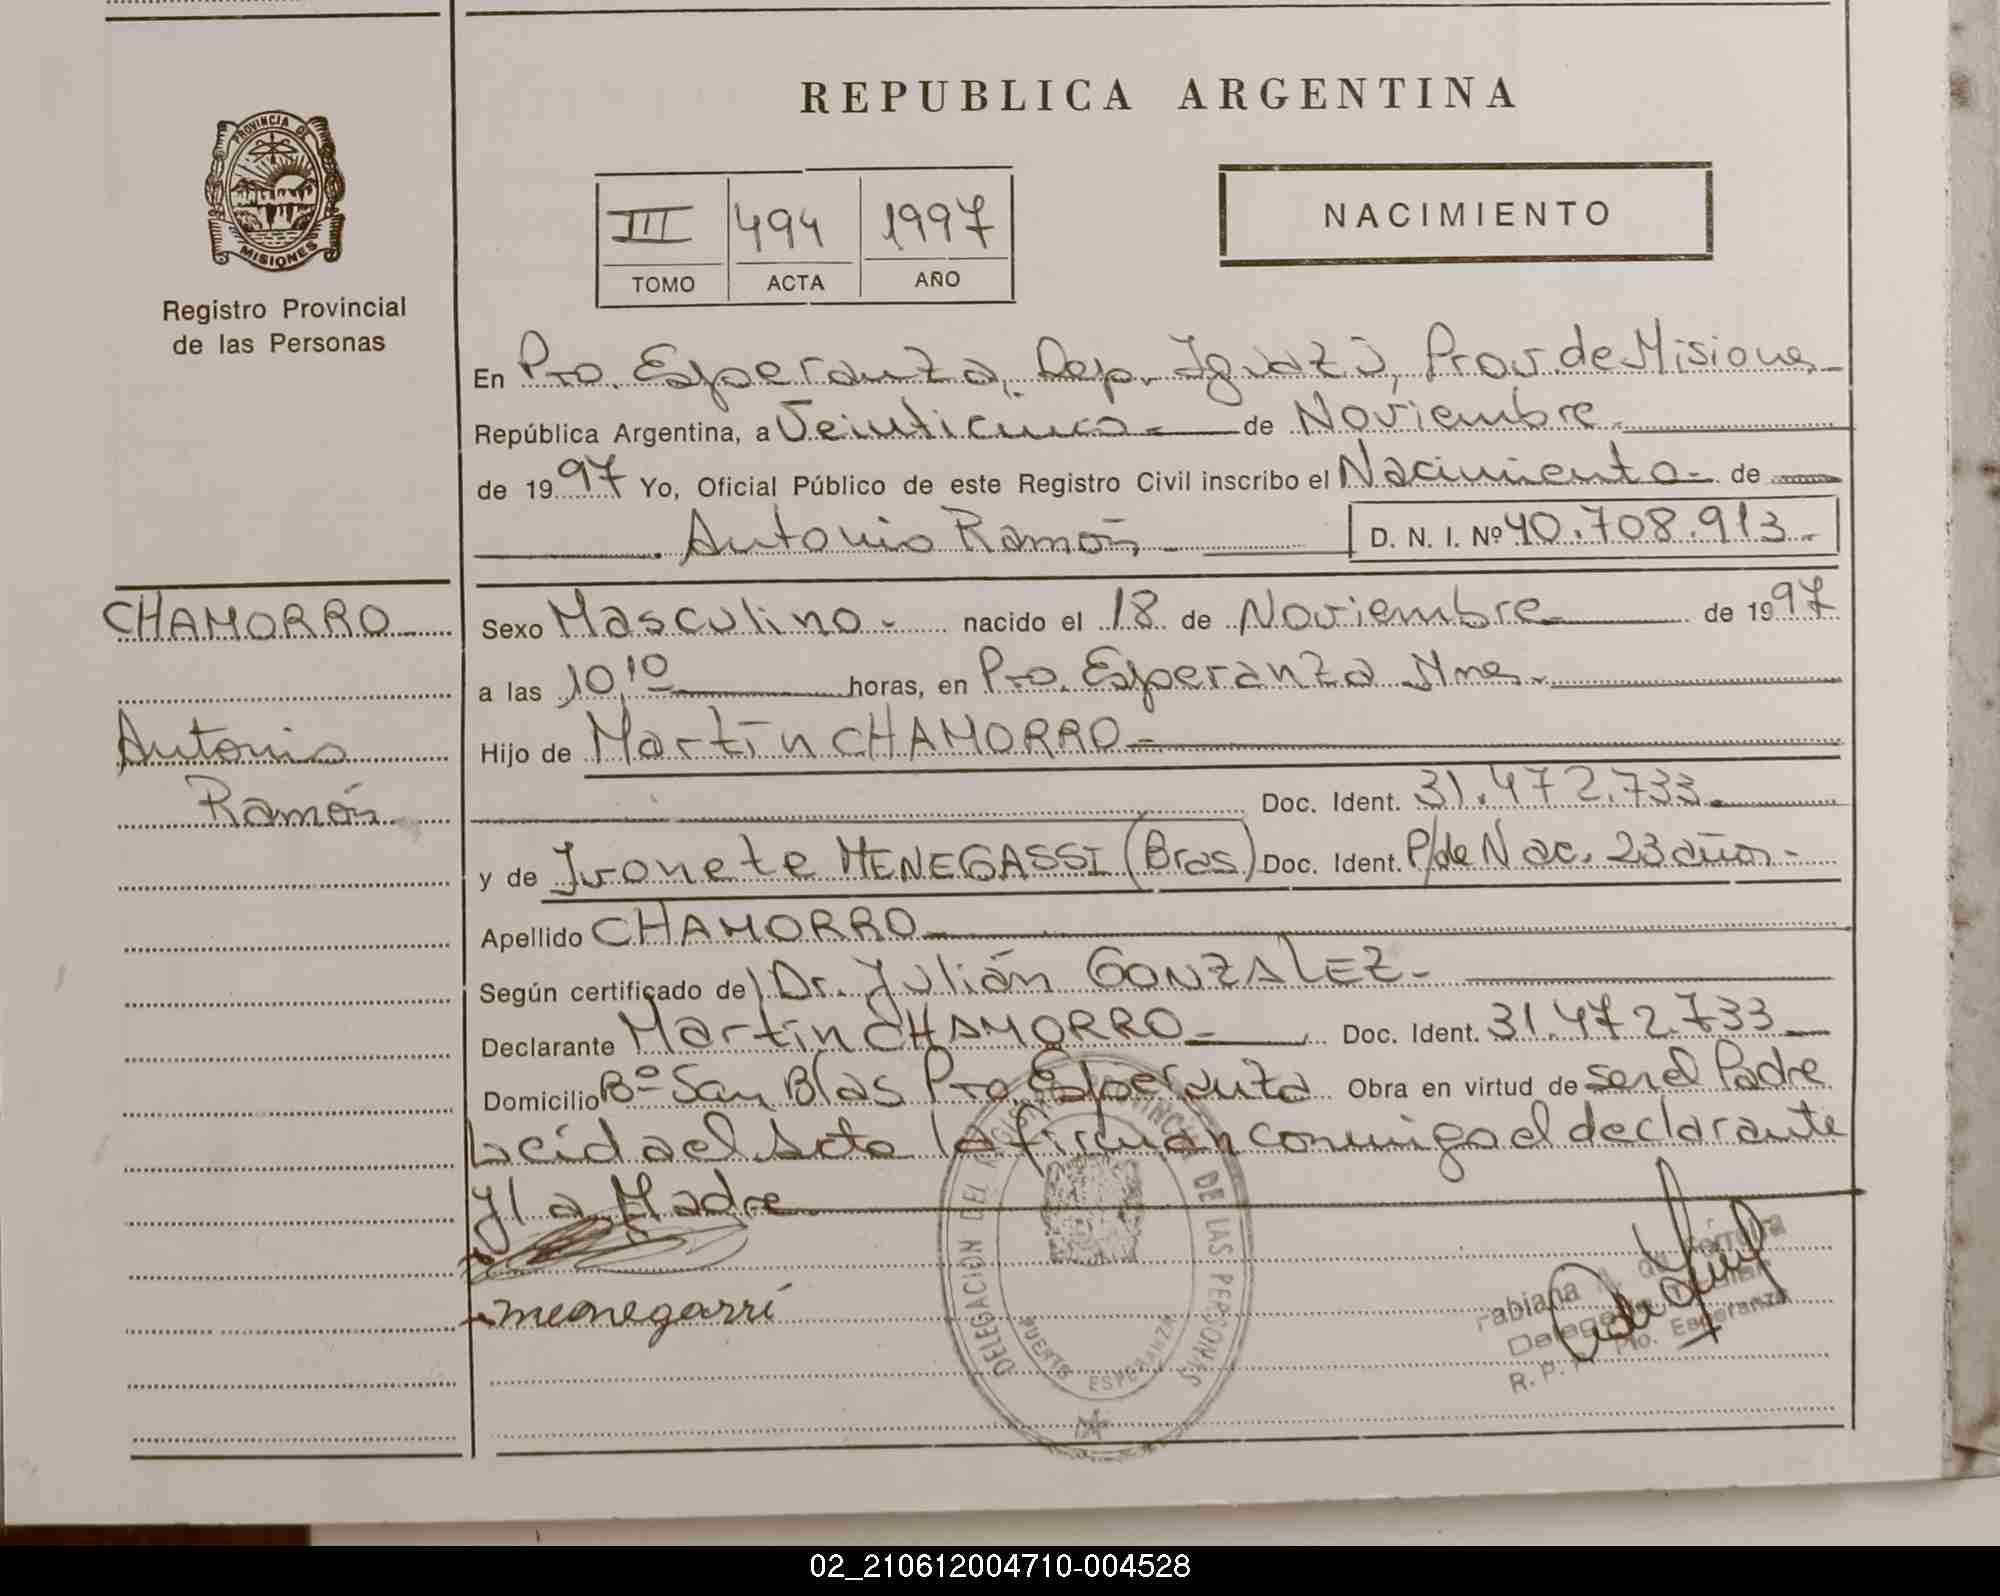 REPUBLICA ARGENTINA
PROVINCIA DE
MISIONES
Registro Provincial
de las Personas
III 494 1997
TOMO ACTA AÑO
NACIMIENTO
En Pto. Esperanza, Dep. Iguazú, Prov. de Misiones
República Argentina, a Veinticinco.- de Noviembre.
de 1997 Yo, Oficial Público de este Registro Civil inscribo el Nacimiento- de
Antonio Ramón D. N. I. Nº 40.708.913.-
CHAMORRO
Antonio
Ramón
Sexo Masculino.- nacido el 18 de Noviembre de 1997
a las 10,10 horas, en Pto. Esperanza Mnes.
Hijo de Martín CHAMORRO.-
Doc. Ident. 31.472.733.
y de Ivonete MENEGASSI (Bras) Doc. Ident. P/de Nac. 23 años.-
Apellido CHAMORRO
Según certificado de Dr. Julián GONZALEZ-
Declarante Martín CHAMORRO.- Doc. Ident. 31.472.733
Domicilio Bº San Blas Pto. Esperanza Obra en virtud de ser el Padre
Leída el Acta la firman conmigo el declarante
y la Madre
menegarri
DELEGACION DEL DE LAS PERSONAS
PUERTO ESPERANZA
Fabiana
R. P. P. Pto. Esperanza
02_210612004710-004528